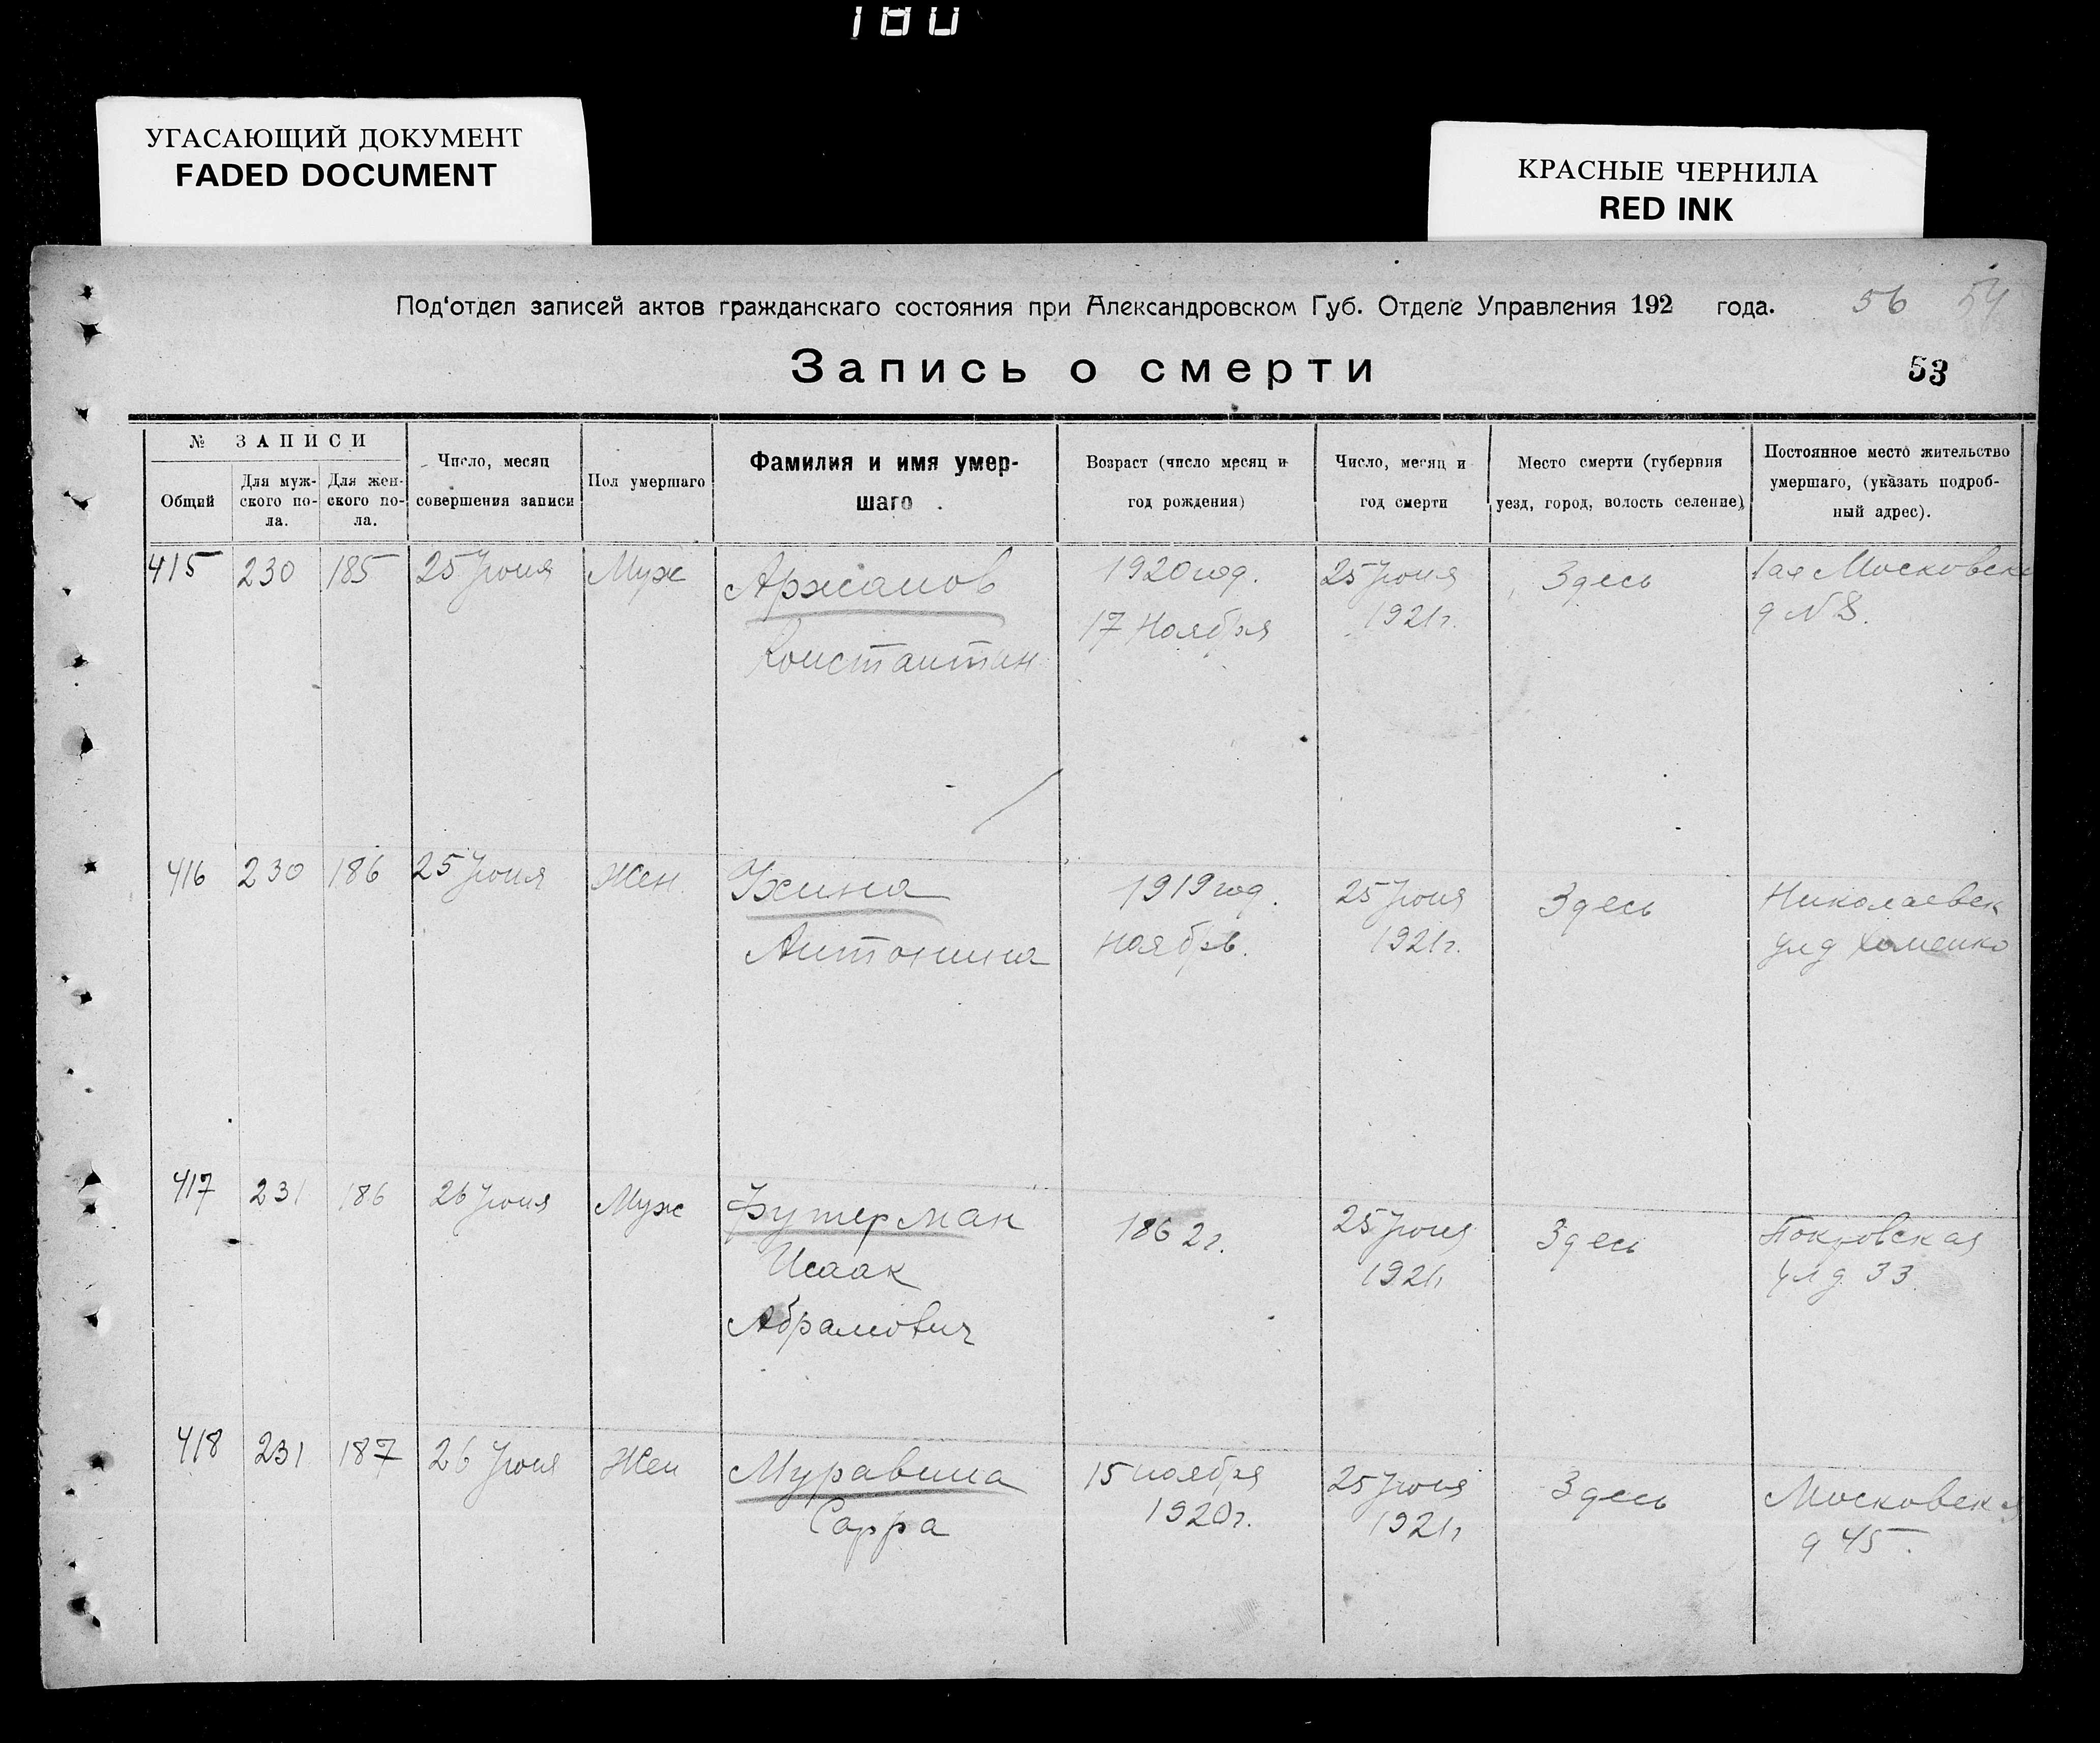 180
УГАСАЮЩИЙ ДОКУМЕНТ
FADED DOCUMENT
КРАСНЫЕ ЧЕРНИЛА
RED INK
Под'отдел записей актов гражданскаго состояния при Александровском Губ. Отделе Управления 192 года.
56 54
Запись о смерти
53
№ ЗАПИСИ
Общий
Для муж-
ского по-
ла.
Для жен-
ского по-
ла.
Число, месяц
совершения записи
Пол умершаго
Фамилия и имя умер-
шаго .
Возраст (число месяц и
год рождения)
Число, месяц и
год смерти
Место смерти (губерния
уезд, город, волость селение)
Постоянное место жительство
умершаго, (указать подроб-
ный адрес).
415 230 185 25 Июня Муж Аржанов 1920 год. 25 Июня Здесь 1ая Московск
Константин 17 Ноября 1921г. д N 8.
416 230 186 25 Июня Жен. Ухина 1919 год. 25 Июня Здесь Николаевск
Антонина ноябрь. 1921г. ул д Хоменко
417 231 186 26 Июня Муж Футерман 1862г. 25 Июня Здесь Покровская
Исаак 1921г ул д 33
Абрамович
418 231 187 26 Июня Жен Муравина 15 ноября 25 Июня Здесь Московская
Сарра 1920г. 1921г д 45